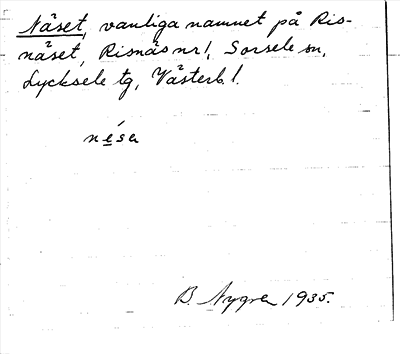 Näset, vanliga namnet på Ris-
näset, Risnäs nr 1, Sorsele sn,
Lycksele tg, Västerb. l.
nésa
B. Nygren 1935.